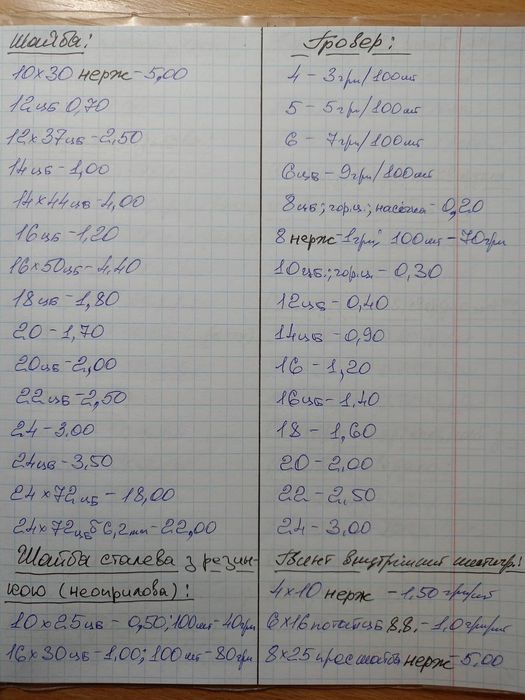 Шайба:
10×30 нерж - 5,00
12цб 0,70
12×37цб - 2,50
14цб - 1,00
14×44цб - 4,00
16цб - 1,20
16×50цб - 4,40
18цб - 1,80
20 - 1,70
20цб - 2,00
22цб - 2,50
24 - 3,00
24цб - 3,50
24×72цб - 18,00
24×72цб б 6,2мм - 22,00
Шайба сталева з резин-
кою (неоприлова):
10×25цб - 0,50; 100шт - 40грн
16×30цб - 1,00; 100шт - 80грн
Гровер:
4 - 3грн/100шт
5 - 5грн/100шт
6 - 7грн/100шт
6цб - 9грн/100шт
8цб; гор.ц.; насечка - 0,20
8 нерж - 1грн; 100шт - 70грн
10цб.; гор.ц. - 0,30
12цб - 0,40
14цб - 0,90
16 - 1,20
16цб - 1,40
18 - 1,60
20 - 2,00
22 - 2,50
24 - 3,00
Гвинт внутрішній шестигр.:
4×10 нерж - 1,50 грн/шт
6×16 потай цб 8.8. - 1,0 грн/шт
8×25 нерж - 5,00